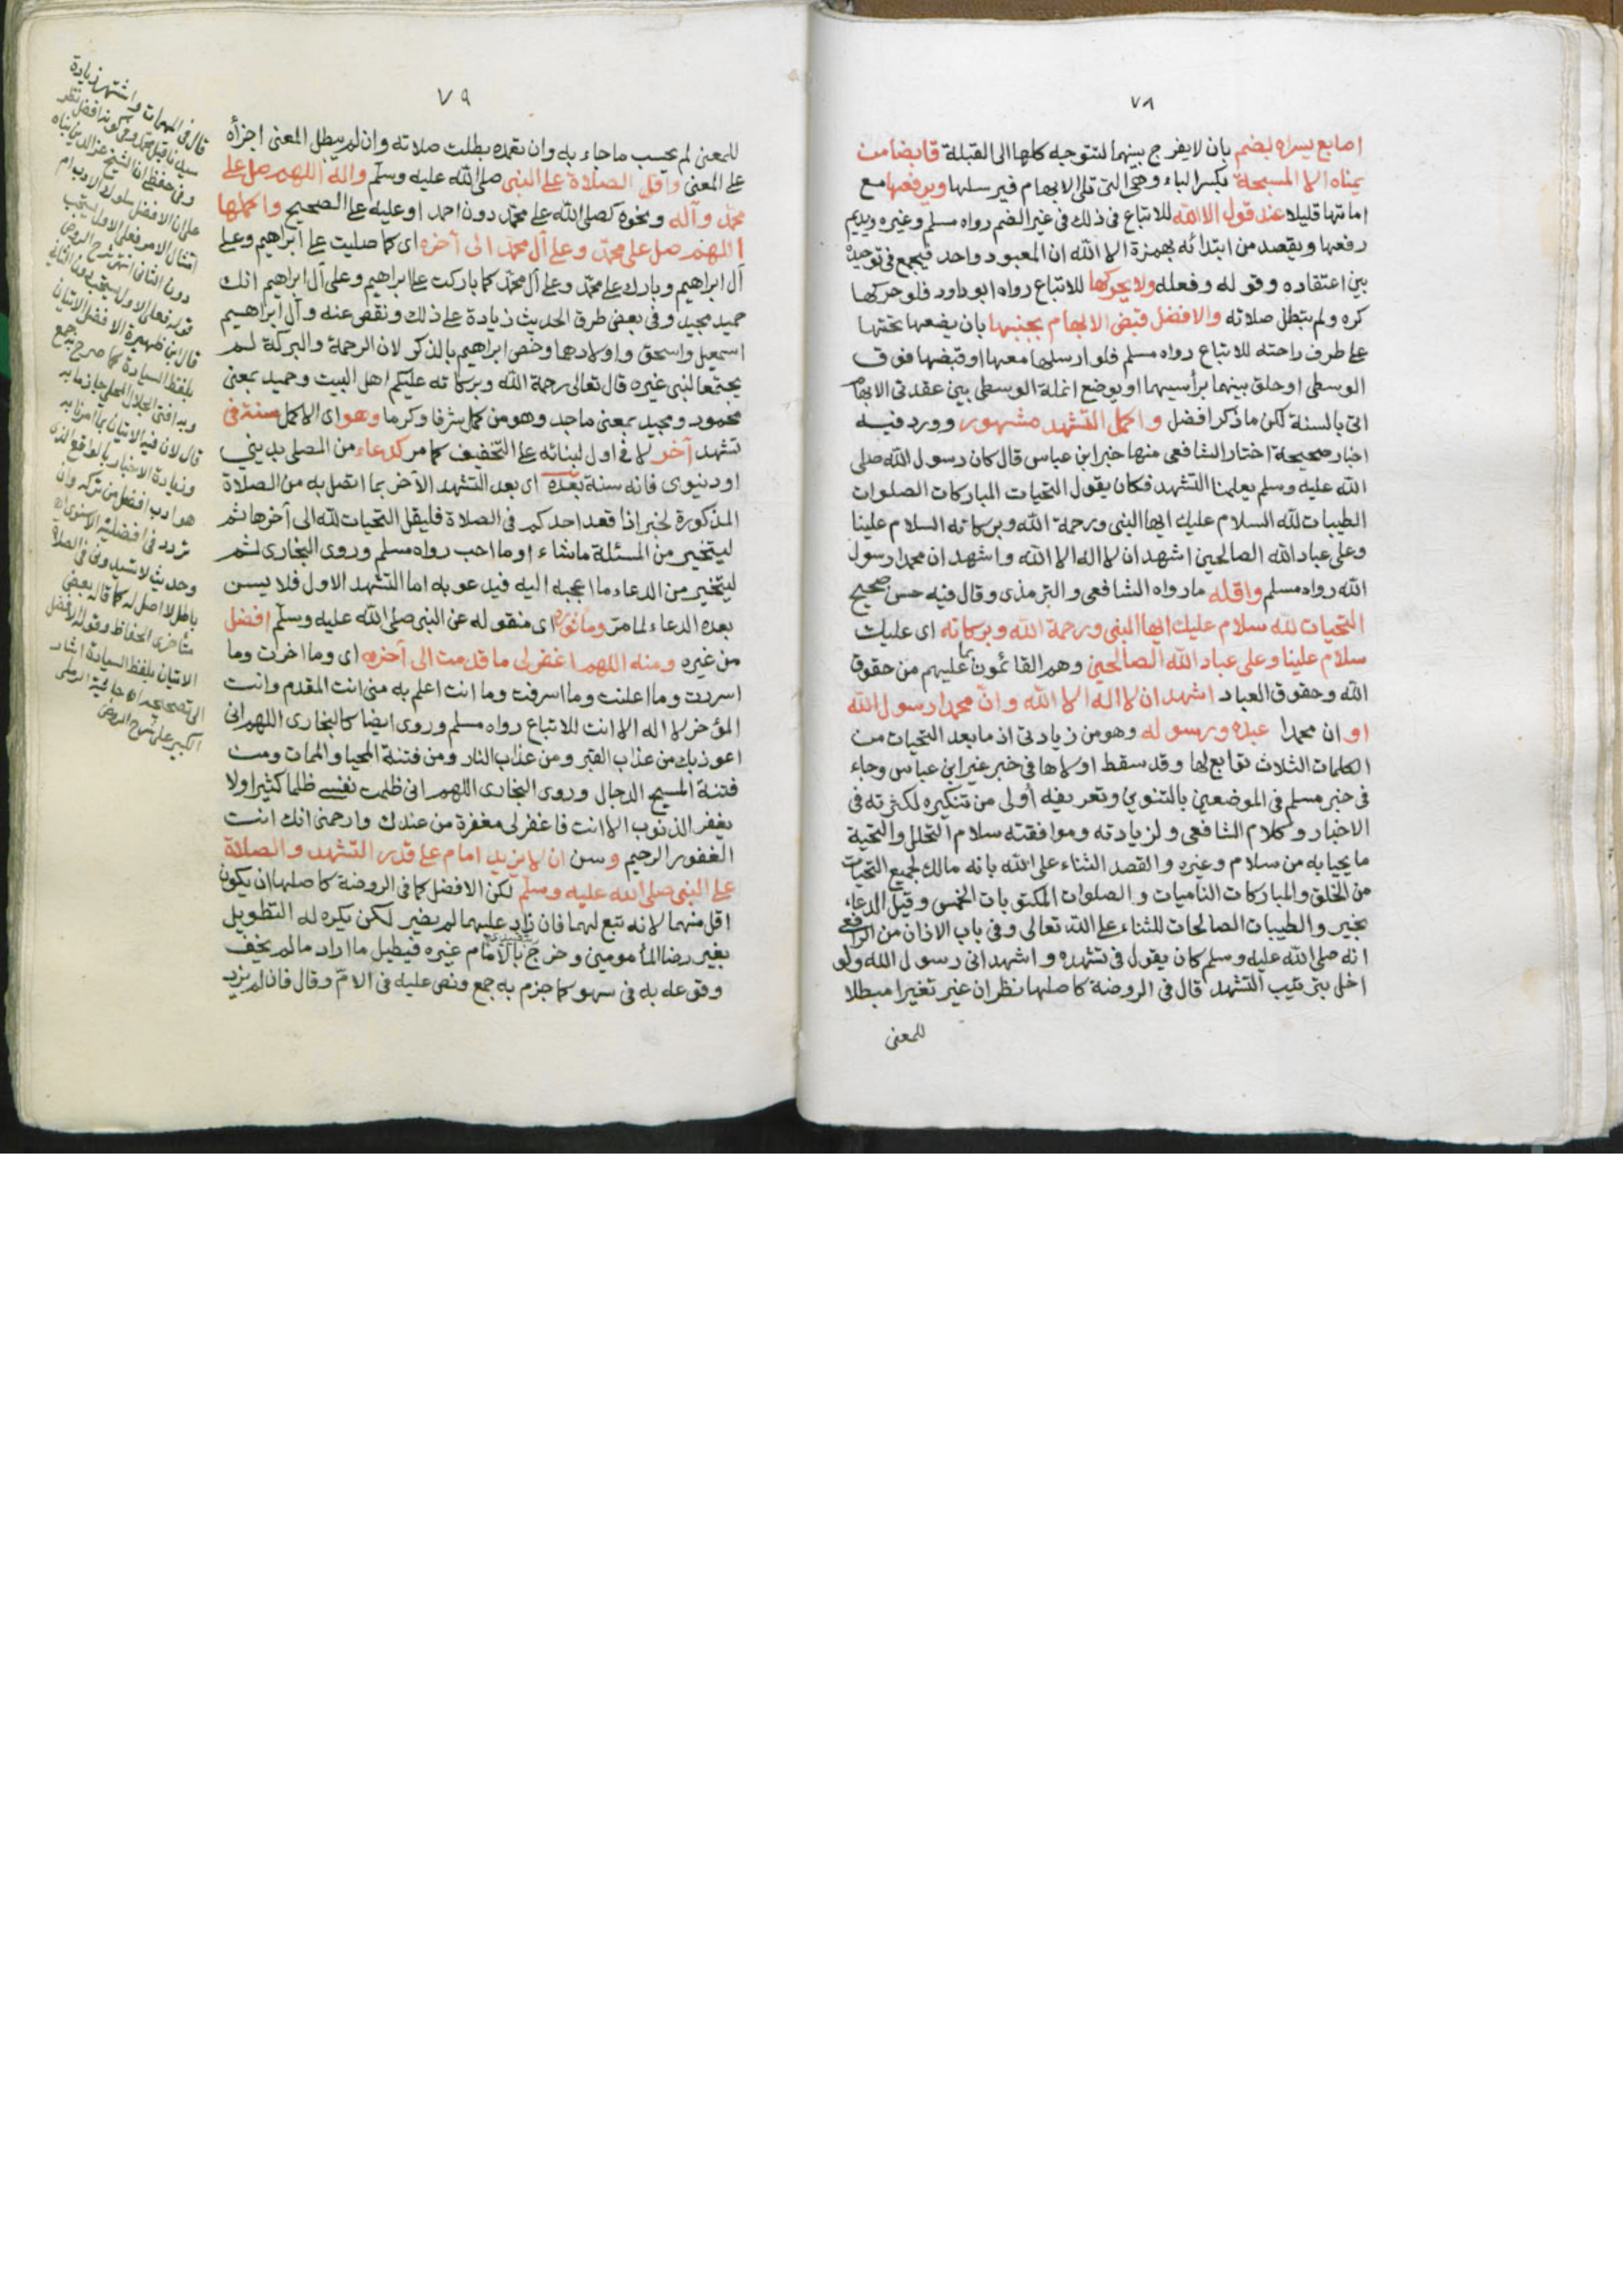 ٧٨
اصابع يسراه بضم بان لا يفرج بينهما لتتوجه كلها الى القبلة قابضا من
يمناه الا المسبحة بكسر الباء وهي التي تلى الابهام فيرسلها ويرفعها مع
امالتها قليلا عند قول الا الله للاتباع فى ذلك فى غير الضم رواه مسلم وغيره ويديم
رفعها ويقصد من ابتدائه بهمزة الا الله ان المعبود واحد فيجمع فى توحيده
بين اعتقاده وقوله وفعله ولا يحركها للاتباع رواه ابو داود فلو حركها
كره ولم تبطل صلاته والافضل قبض الابهام بجنبها بان يضعها تحتها
على طرف راحته للاتباع رواه مسلم فلو ارسلها معها او قبضها فوق
الوسطى او حلق بينهما برأسيهما او بوضع انملة الوسطى بين عقدتى الابهام
اتى بالسنة لكن ما ذكر افضل واكمل التشهد مشهور وورد فيه
اخبار صحيحة اختار الشافعى منها خبر ابن عباس قال كان رسول الله صلى
الله عليه وسلم يعلمنا التشهد فكان يقول التحيات المباركات الصلوات
الطيبات لله السلام عليك ايها النبى ورحمة الله وبركاته السلام علينا
وعلى عباد الله الصالحين اشهد ان لا اله الا الله واشهد ان محمدا رسول
الله رواه مسلم واقله ما رواه الشافعى والترمذى وقال فيه حسن صحيح
التحيات لله سلام عليك ايها النبى ورحمة الله وبركاته اى عليك
سلام علينا وعلى عباد الله الصالحين وهم القائمون بما عليهم من حقوق
الله وحقوق العباد اشهد ان لا اله الا الله وان محمدا رسول الله
او ان محمدا عبده ورسوله وهو من زيادتى اذ ما بعد التحيات من
الكلمات الثلاث توابع لها وقد سقط اولاها فى خبر غير ابن عباس وجاء
فى خبر مسلم فى الموضعين بالتنوين وتعريفه أولى من تنكيره لكثرته فى
الاخبار وكلام الشافعى ولزيادته وموافقته سلام التحلل والتحية
ما يحيا به من سلام وغيره والقصد الثناء على الله بانه مالك لجميع التحيات
من الخلق والمباركات الناميات والصلوات المكتوبات الخمس وقيل الدعاء
بخير والطيبات الصالحات للثناء على الله تعالى وفى باب الاذان من الرافعى
انه صلى الله عليه وسلم كان يقول فى تشهده واشهد انى رسول الله ولو
اخل بترتيب التشهد قال فى الروضة كاصلها نظر ان غير تغييرا مبطلا
للمعنى
٧٩
للمعنى لم يحسب ما جاء به وان تعمده بطلت صلاته وان لم يبطل المعنى اجزأه
على المعنى واقل الصلاة على النبى صلى الله عليه وسلم وآله اللهم صل على
محمد وآله ونحوه كصلى الله على محمد دون احمد او عليه على الصحيح واكملها
اللهم صل على محمد وعلى آل محمد الى آخره اى كما صليت على ابراهيم وعلى
آل ابراهيم وبارك على محمد وعلى آل محمد كما باركت على ابراهيم وعلى آل ابراهيم انك
حميد مجيد وفى بعض طرق الحديث زيادة على ذلك ونقص عنه وآل ابراهيم
اسمعيل واسحق واولادهما وخص ابراهيم بالذكر لان الرحمة والبركة لم
يجتمعا لنبى غيره قال تعالى رحمة الله وبركاته عليكم اهل البيت وحميد بمعنى
محمود ومجيد بمعنى ماجد وهو من كمل شرفا وكرما وهو اى الاكمل سنة فى
تشهد آخر لا فى اول لبنائه على التخفيف كما مر كدعاء من المصلى بدينى
او دنيوى فانه سنة بعده اى بعد التشهد الآخر بما اتصل به من الصلاة
المذكورة لخبر اذا قعد احدكم فى الصلاة فليقل التحيات لله الى آخرها ثم
ليتخير من المسئلة ما شاء او ما احب رواه مسلم وروى البخارى ثم
ليتخير من الدعاء ما اعجبه اليه فيدعو به اما التشهد الاول فلا يسن
بعده الدعاء لما مر ومأثوره اى منقوله عن النبى صلى الله عليه وسلم افضل
من غيره ومنه اللهم اغفر لى ما قدمت الى آخره اى وما اخرت وما
اسررت وما اعلنت وما اسرفت وما انت اعلم به منى انت المقدم وانت
المؤخر لا اله الا انت للاتباع رواه مسلم وروى ايضا كالبخارى اللهم انى
اعوذ بك من عذاب القبر ومن عذاب النار ومن فتنة المحيا والممات ومن
فتنة المسيح الدجال وروى البخارى اللهم انى ظلمت نفسى ظلما كثيرا ولا
يغفر الذنوب الا انت فاغفر لى مغفرة من عندك وارحمنى انك انت
الغفور الرحيم وسن ان لا يزيد امام على قدر التشهد والصلاة
على النبى صلى الله عليه وسلم لكن الافضل كما فى الروضة كاصلها ان يكون
اقل منهما لانه تبع لهما فان زاد عليهما لم يضر لكن يكره له التطويل
بغير رضا المأمومين وخرج بالامام غيره فيطيل ما اراد ما لم يخف
وقوعه به فى سهو كما جزم به جمع ونص عليه فى الام وقال فان لم يزد
قال فى المهمات واشتهر زيادة
سيدنا قبل محمد وفى كونه افضل نظر
وفى حفظى ان الشيخ عز الدين بناه
على ان الافضل سلوك الادب ام
امتثال الامر فعلى الاول يستحب
دون الثانى انتهى شرح الروض
قوله فعلى الاول يستحب دون الثانى
قال ابن ظهيرة الافضل الاتيان
بلفظ السيادة كما صرح به جمع
وبه افتى الجلال المحلى جازما به
قال لان فيه الاتيان بما امرنا به
وزيادة الاخبار بالواقع الذى
هو ادب افضل من تركه وان
تردد فى افضليته الاسنوى اه
وحديث لا تسيدونى فى الصلاة
باطل لا اصل له كما قاله بعض
متأخرى الحفاظ وقوله الافضل
الاتيان بلفظ السيادة اشار
الى تصحيحه اه حاشية الرملى
الكبير على شرح الروض